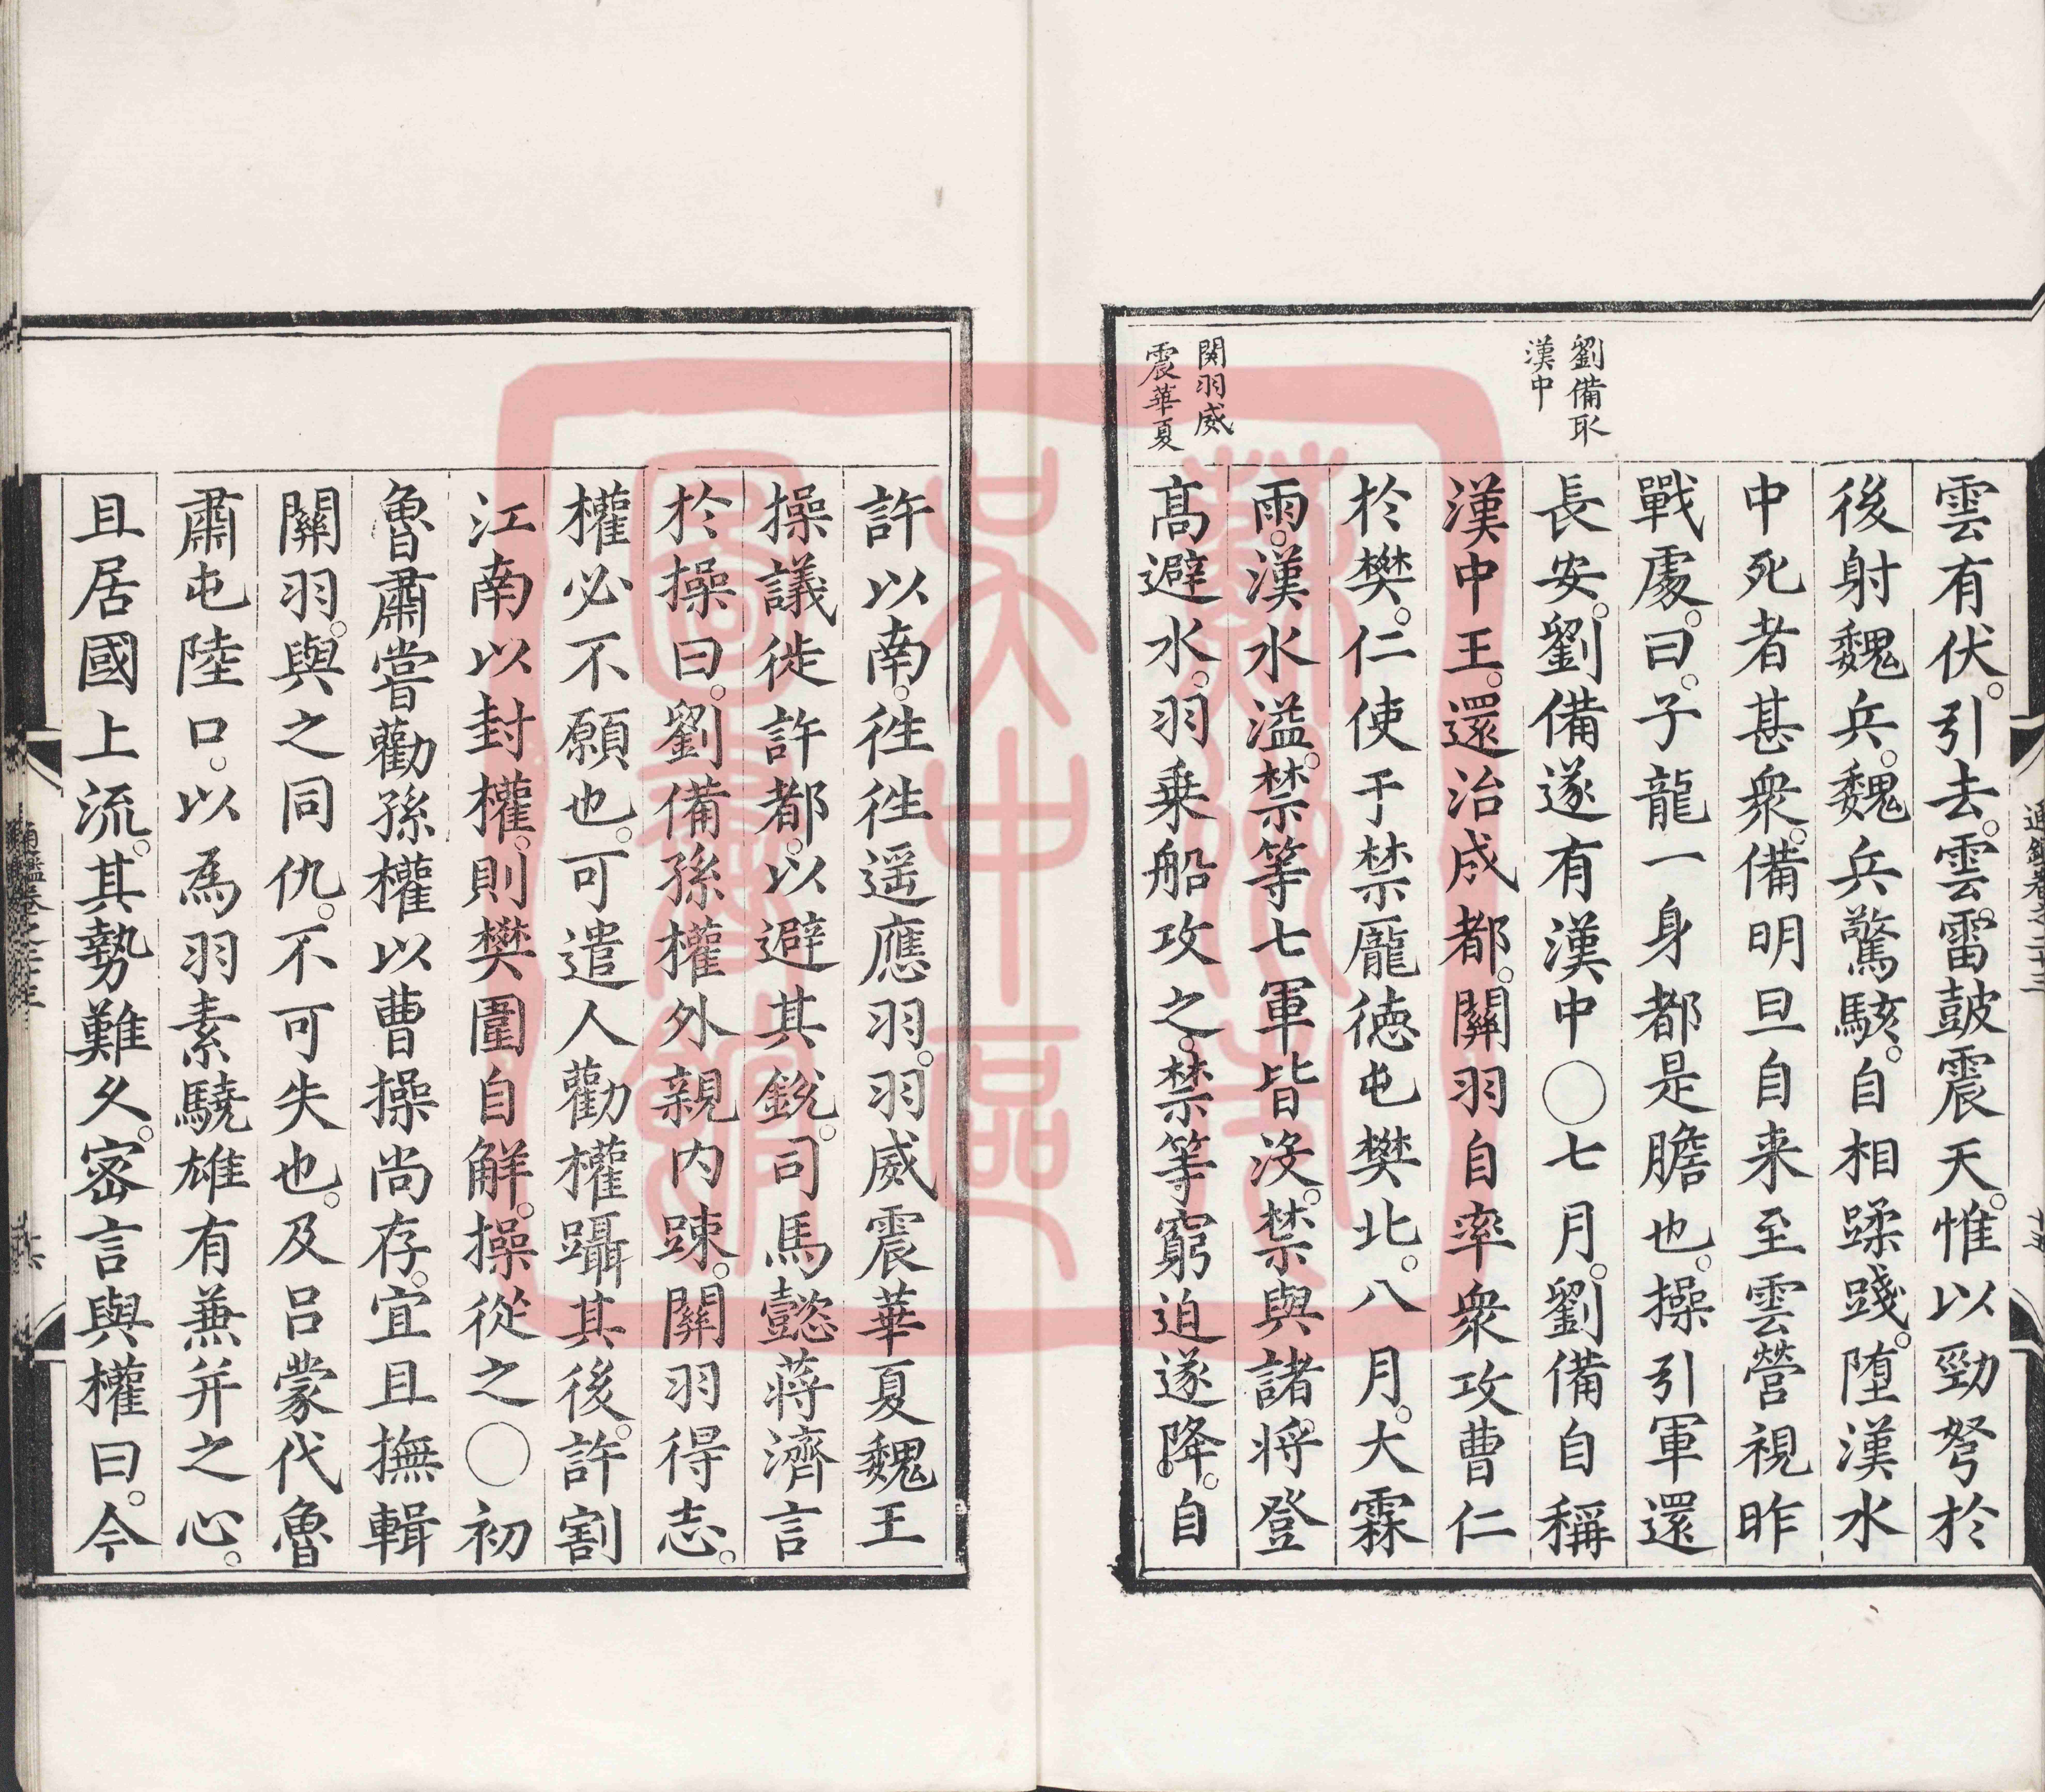 劉備取
漢中
関羽威
震華夏
雲有伏。引去。雲雷鼓震天。惟以勁弩於
後射魏兵。魏兵驚駭。自相蹂踐。堕漢水
中死者甚衆。備明旦自来至雲營視昨
戰處。曰。子龍一身都是膽也。操引軍還
長安。劉備遂有漢中〇七月。劉備自稱
漢中王。還治成都。關羽自率衆攻曹仁
於樊。仁使于禁龐德屯樊北。八月。大霖
雨。漢水溢。禁等七軍皆没。禁與諸將登
高避水。羽乗船攻之。禁等窮迫遂降。自
許以南。徃徃遥應羽。羽威震華夏魏王
操議徙許都。以避其銳。司馬懿蔣濟言
於操曰。劉備孫權外親内踈。關羽得志。
權必不願也。可遣人勸權躡其後。許割
江南以封權。則樊圍自解。操從之〇初
魯肅嘗勸孫權以曹操尚存。宜且撫輯
關羽。與之同仇。不可失也。及吕蒙代魯
肅屯陸口。以爲羽素驍雄有兼并之心。
且居國上流。其勢難久。密言與權曰。今